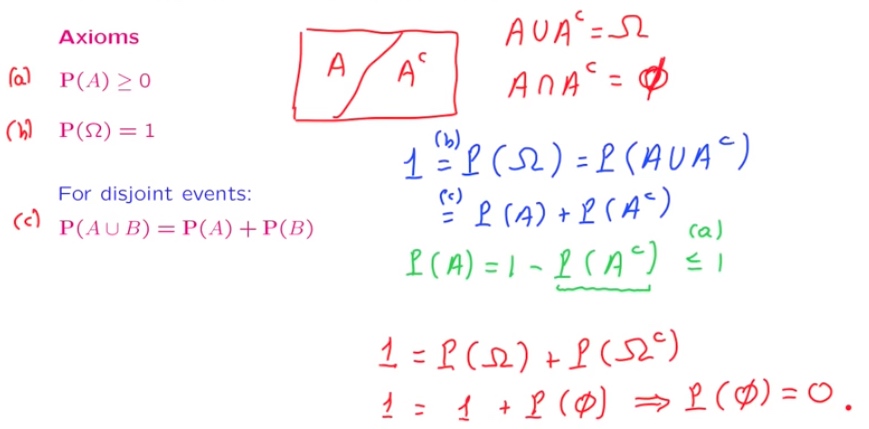 Axioms
(a) P(A) ≥ 0
(b) P(Ω) = 1
For disjoint events:
(c) P(A ∪ B) = P(A) + P(B)
A Aᶜ
A ∪ Aᶜ = Ω
A ∩ Aᶜ = Ø
1 (b)= P(Ω) = P(A ∪ Aᶜ)
(c)= P(A) + P(Aᶜ)
P(A) = 1 - P(Aᶜ) (a)≤ 1
1 = P(Ω) + P(Ωᶜ)
1 = 1 + P(Ø) ⇒ P(Ø) = 0.